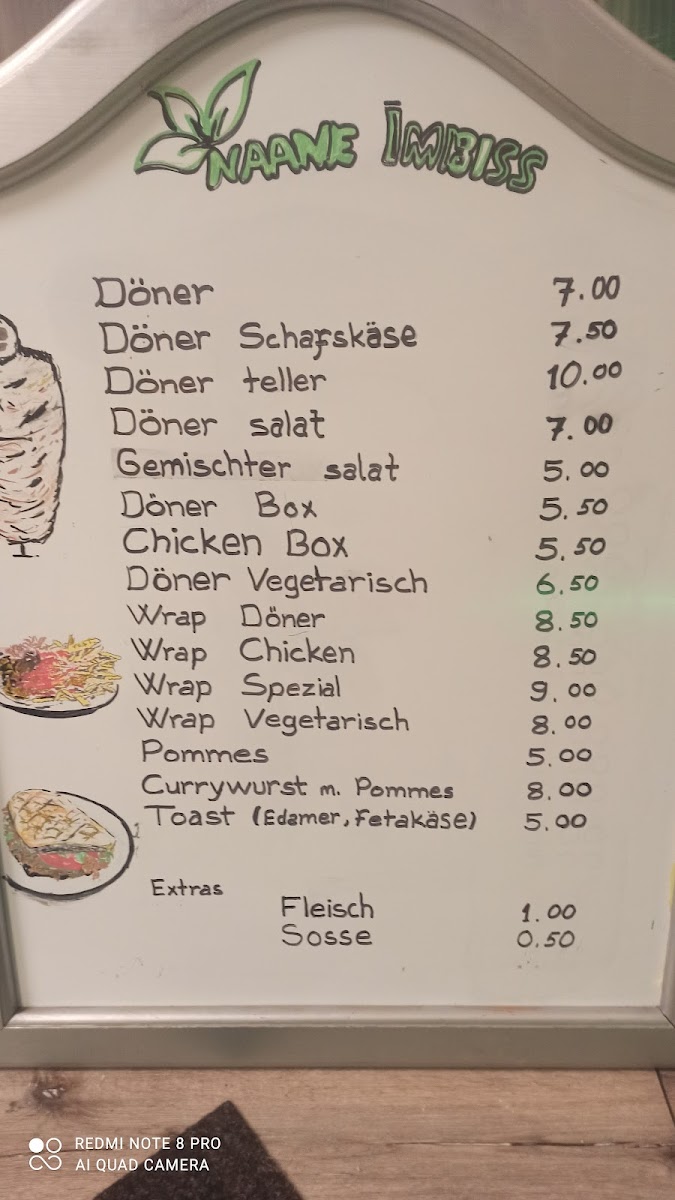 NAANE IMBISS
Döner 7.00
Döner Schafskäse 7.50
Döner teller 10.00
Döner salat 7.00
Gemischter salat 5.00
Döner Box 5.50
Chicken Box 5.50
Döner Vegetarisch 6.50
Wrap Döner 8.50
Wrap Chicken 8.50
Wrap Spezial 9.00
Wrap Vegetarisch 8.00
Pommes 5.00
Currywurst m. Pommes 8.00
Toast (Edamer, Fetakäse) 5.00
Extras
Fleisch 1.00
Sosse 0.50
REDMI NOTE 8 PRO
AI QUAD CAMERA